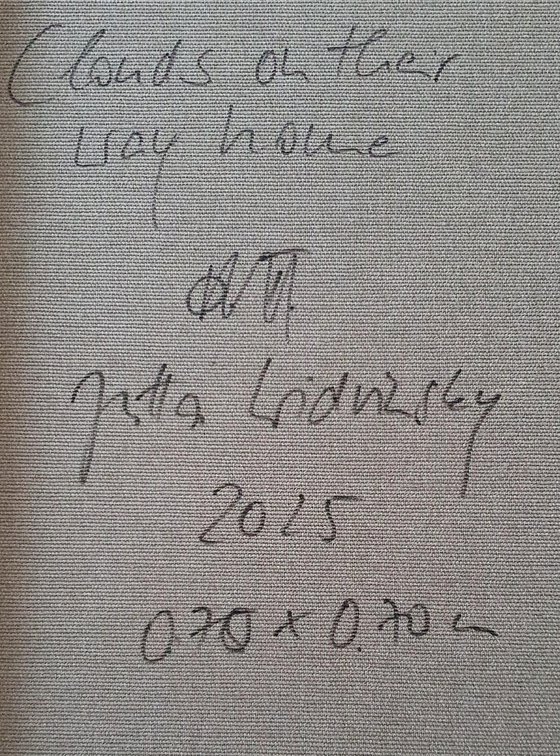 Clouds on their
way home
Jutta
2025
0.70 x 0.70 m